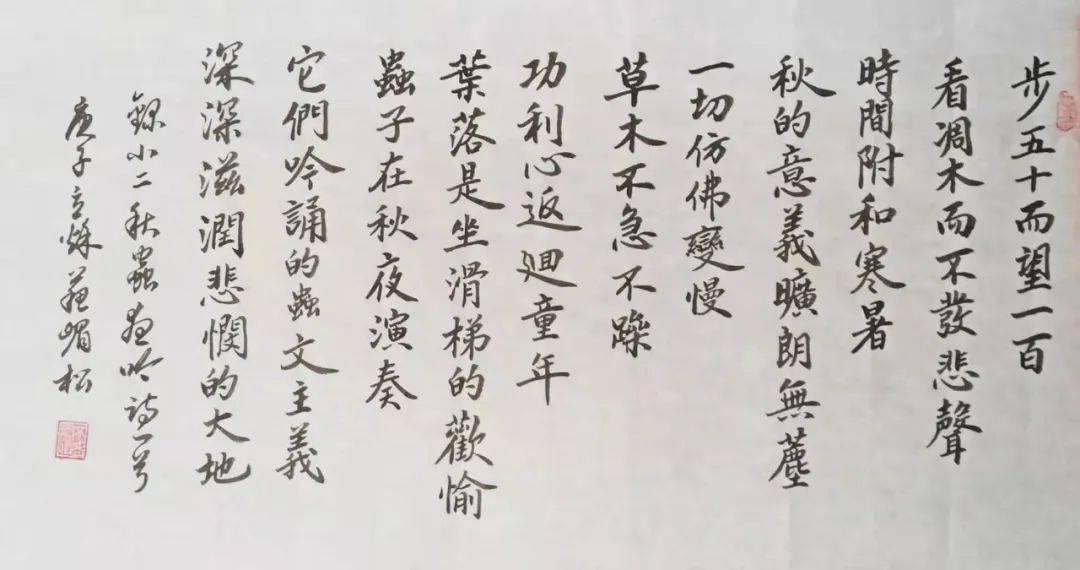 步五十而望一百
看凋木而不發悲聲
時間附和寒暑
秋的意義曠朗無塵
一切仿佛變慢
草木不急不躁
功利心返迴童年
葉落是坐滑梯的歡愉
蟲子在秋夜演奏
它們吟誦的蟲文主義
深深滋潤悲憫的大地
錄小二秋蟲夜吟詩一首
庚子立秋 媚松